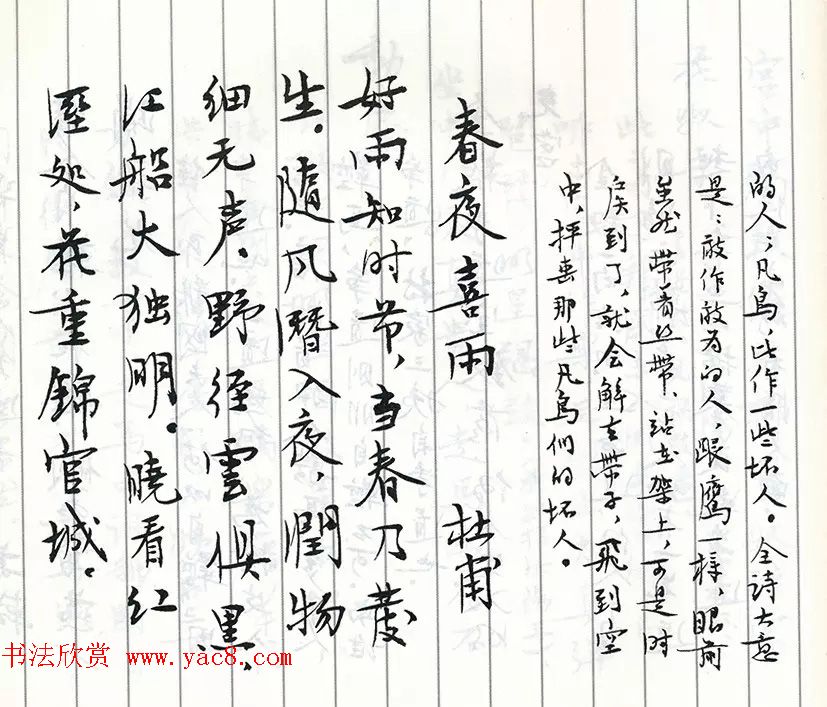 的人；凡鸟，比作一些坏人。全诗大意
是：敢作敢为的人，跟鹰一样，眼前
虽然带着丝带、站在架上，可是时
候到了，就会解去带子，飛到空
中，抨击那些凡鸟们的坏人。
春夜喜雨　杜甫
好雨知时节，当春乃发
生。随风潛入夜，潤物
细无声。野径雲俱黑，
江船火独明。曉看红
溼处，花重錦官城。
书法欣赏 www.yac8.com